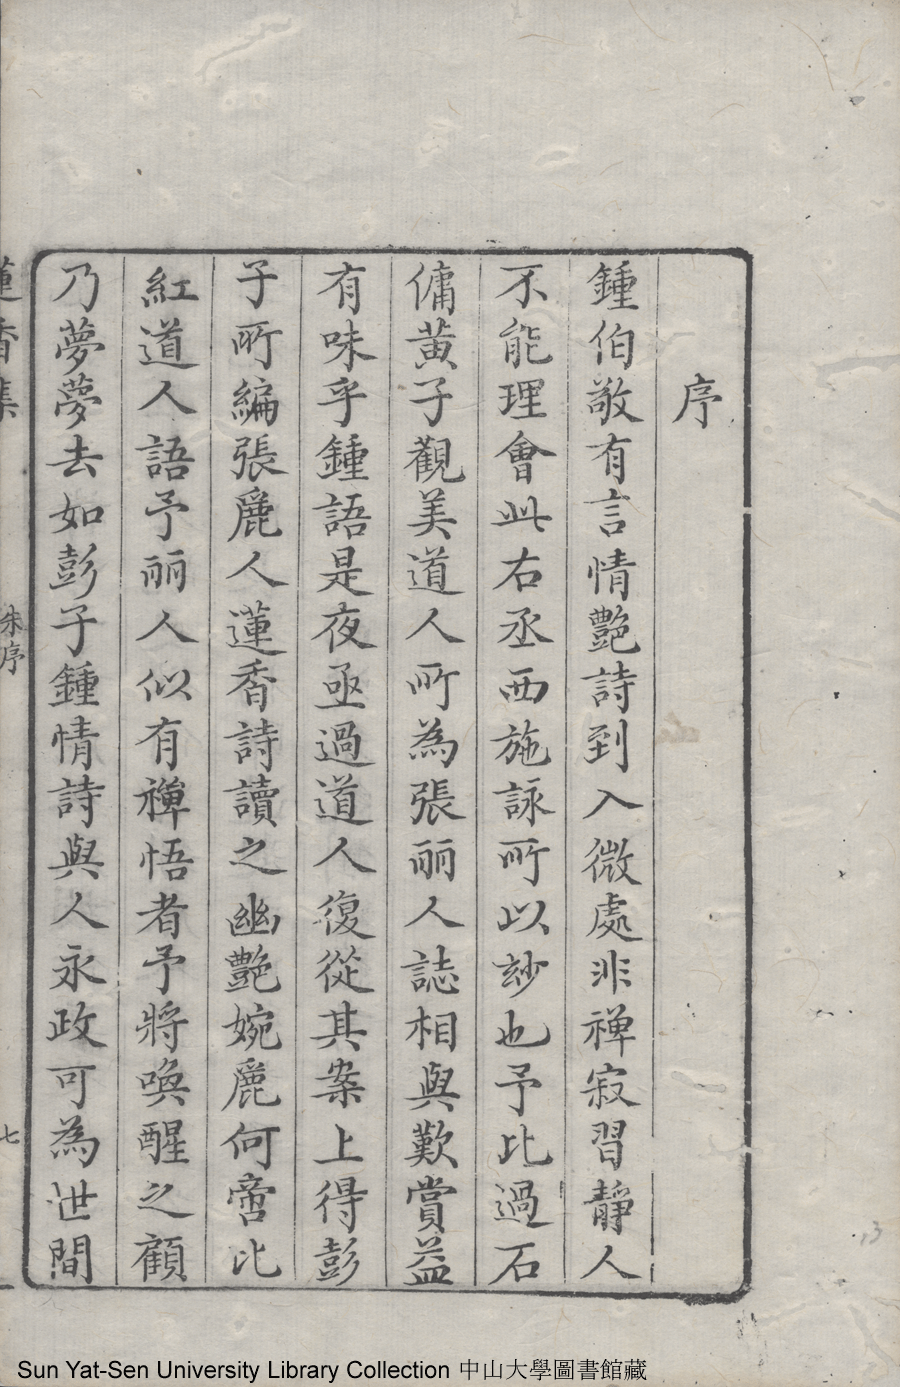 序
鍾伯敬有言情艷詩到入微處非禪寂習靜人
不能理會此右丞西施詠所以玅也予比過石
傭黃子觀美道人所為張丽人誌相與歎賞益
有味乎鍾語是夜亟過道人復從其案上得彭
子所編張麗人蓮香詩讀之幽艷婉麗何啻比
紅道人語予丽人似有禪悟者予將喚醒之顧
乃夢夢去如彭子鍾情詩與人永政可為世間
蓮香集
朱序
七
Sun Yat-Sen University Library Collection 中山大學圖書館藏